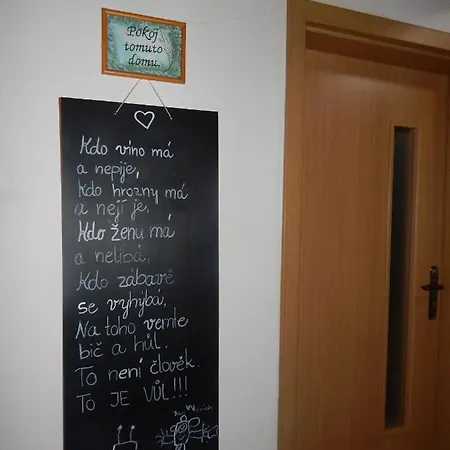 Pokoj
tomuto
domu.
Kdo víno má
a nepije,
kdo hrozny má
a nejí je,
Kdo ženu má
a nelíbá,
Kdo zábavě
se vyhýbá,
Na toho vemte
bič a hůl.
To není člověk.
To JE VŮL!!!